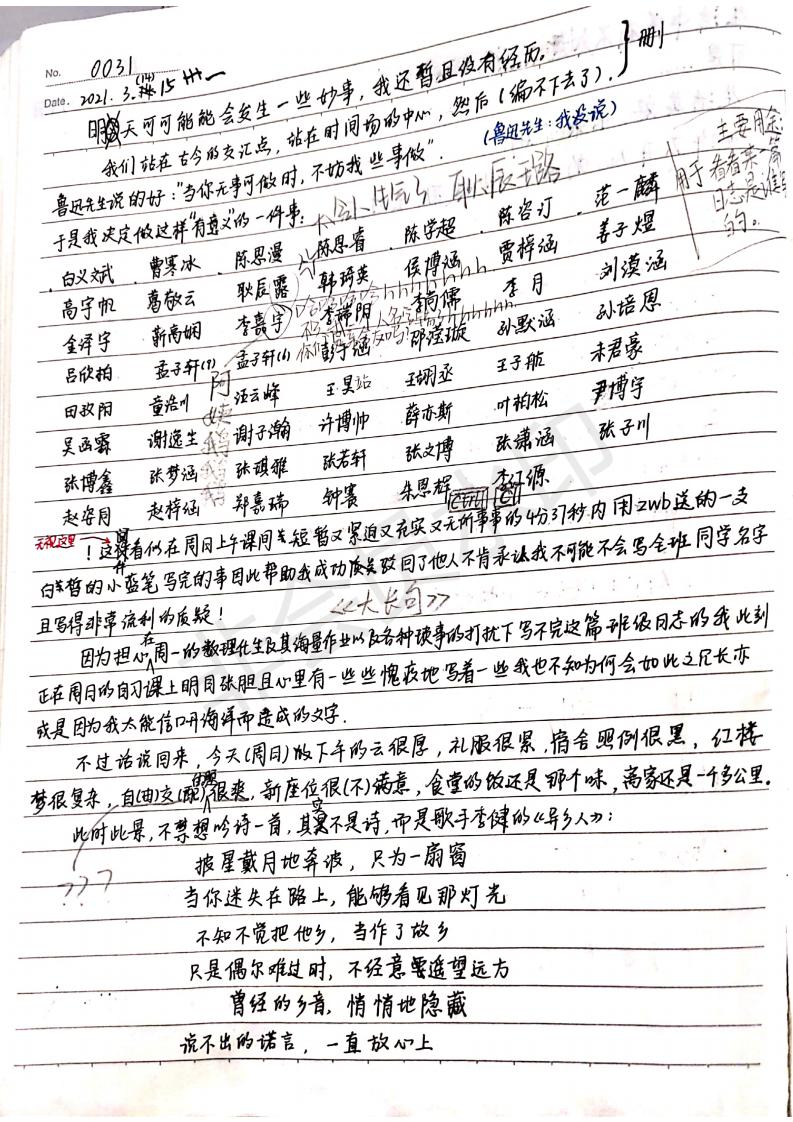 No. 0031
Date. 2021. 3. (14) 15 卅一
明天可可能能会发生一些妙事，我还暂且没有经历。
我们站在古今的交汇点，站在时间场的中心，然后（编不下去了）.
} 删
鲁迅先生说的好："当你无事可做时，不妨找些事做"。
(鲁迅先生：我没说)
于是我决定做这样"有意义"的一件事：
耿辰璐
主要用途:
用于看看来
日志是谁
的。
白义文武 曹寒冰 陈思漫 陈思睿 陈学超 陈咨订 范一麟
高宇帆 葛敬云 耿辰露 韩琦英 侯博涵 贾梓涵 姜子煜
金泽宇 靳雨娴 李嘉宇 李锦阳 李尚儒 李月 刘漠涵
吕欣柏 孟子轩(9) 孟子轩(6) 彭子涵 邵滢璇 孙默涵 孙培恩
田政阳 董浩川 汪云峰 王昊站 王翊丞 王子航 未君豪
吴函霖 谢逸生 谢子瀚 许博帅 薛亦斯 叶柏松 尹博宇
张博鑫 张梦涵 张祺雅 张若轩 张文博 张潇涵 张子川
赵姿月 赵梓涵 郑嘉瑞 钟赛 朱恩辉 李源
无视这里→
！这样看似在周日上午课间短暂又紧迫又充实又无所事事的4分37秒内用zwb送的一支
白皙的小蓝笔写完的事因此帮助我成功质疑驳回了他人不肯承认我不可能不会写全班同学名字
且写得非常流利的质疑！
《大长句》
因为担心在周一的数理化生及其海量作业以及各种琐事的打扰下写不完这篇班级同志的我此刻
正在周日的自习课上明目张胆且心里有一些些愧疚地写着一些我也不知为何会如此之冗长亦
或是因为我太能信口开海洋而造成的文字.
不过话说回来，今天(周日)放下午的云很厚，礼服很紧，宿舍照例很黑，红楼
梦很复杂，自(由)交(配)很爽，新座位很(不)满意，食堂的饭还是那个味，离家还是一千多公里.
此时此景，不禁想吟诗一首，其实不是诗，而是歌手李健的《异乡人》:
???
披星戴月地奔波，只为一扇窗
当你迷失在路上，能够看见那灯光
不知不觉把他乡，当作了故乡
只是偶尔难过时，不经意要遥望远方
曾经的乡音，悄悄地隐藏
说不出的诺言，一直放心上